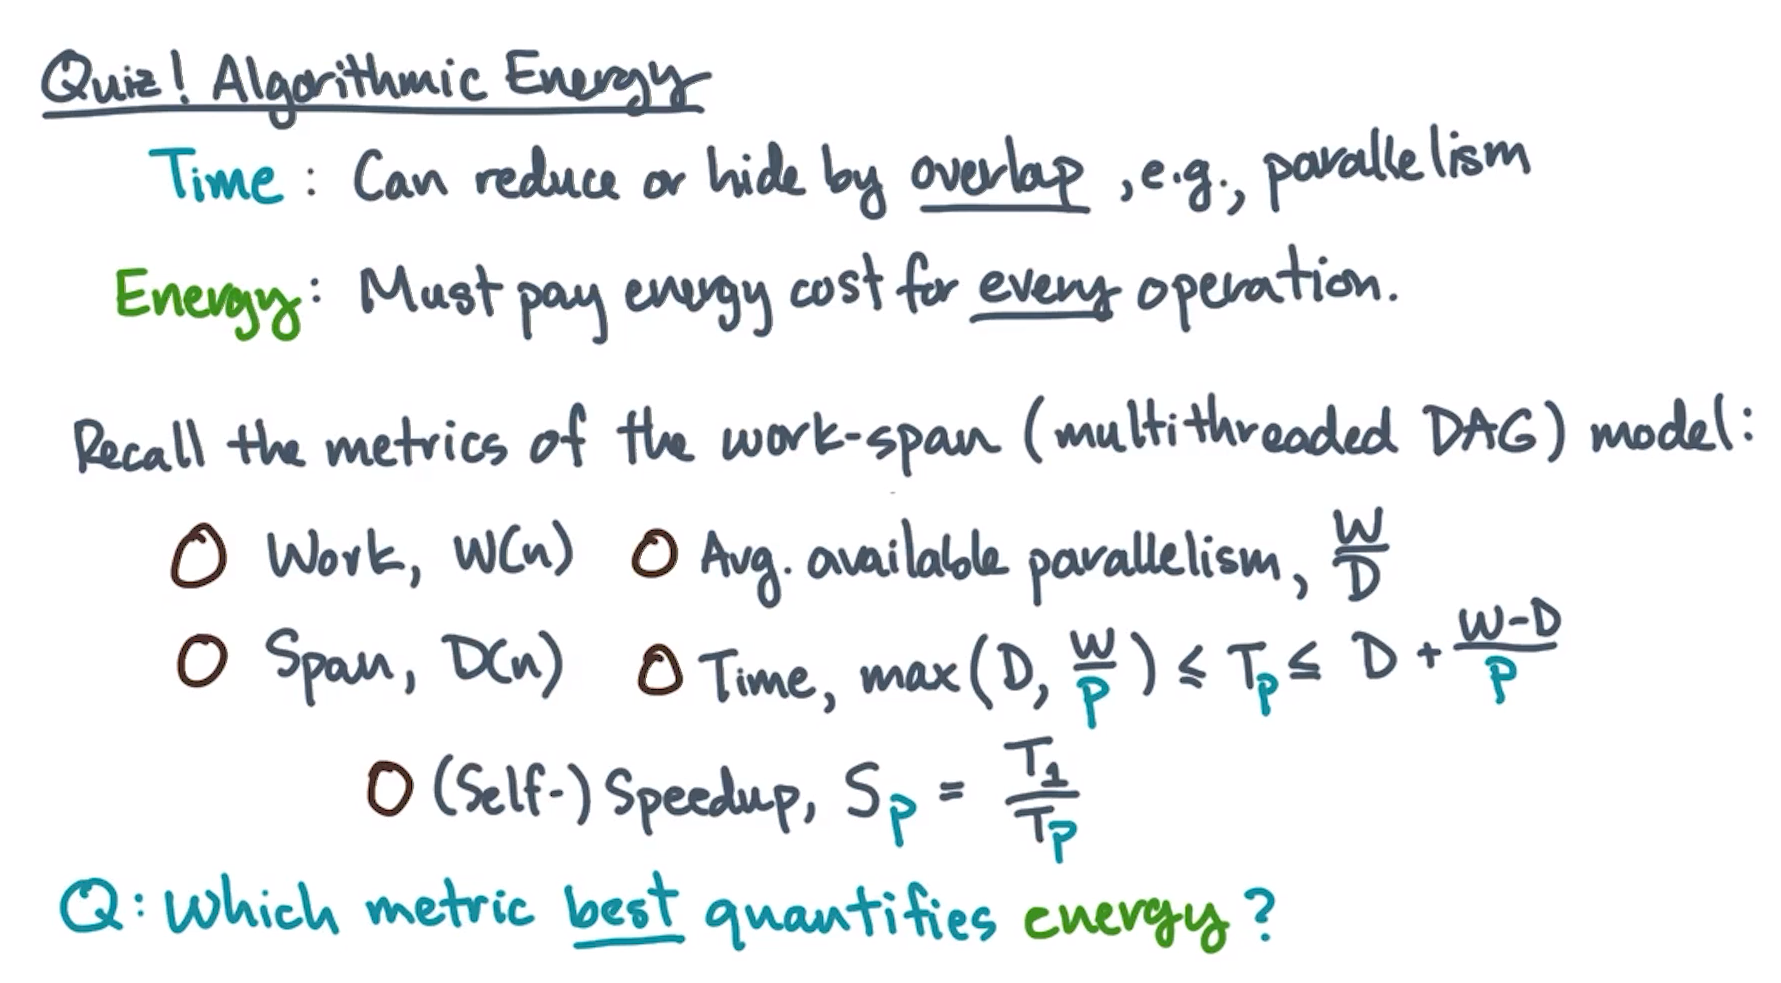 Quiz! Algorithmic Energy
Time: Can reduce or hide by overlap, e.g., parallelism
Energy: Must pay energy cost for every operation.
Recall the metrics of the work-span (multithreaded DAG) model:
O Work, W(n) O Avg. available parallelism, W/D
O Span, D(n) O Time, max(D, W/P) ≤ Tp ≤ D + W-D/P
O (Self-) Speedup, Sp = T1/Tp
Q: Which metric best quantifies energy?